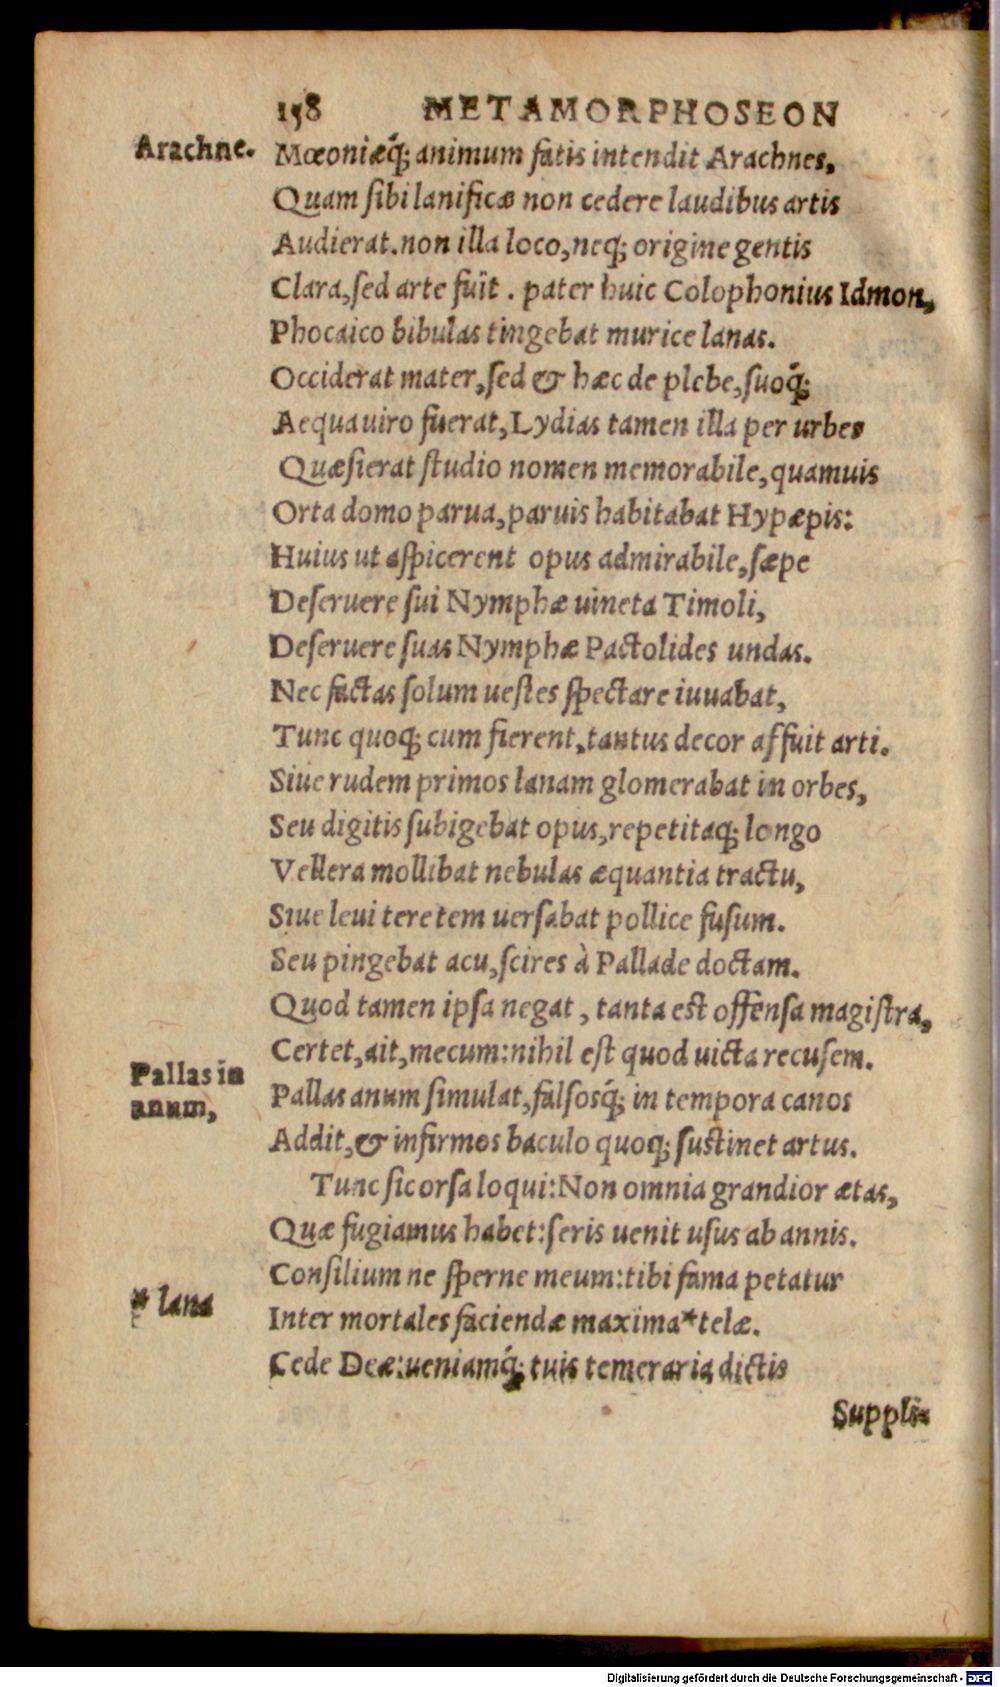 158 METAMORPHOSEON
Arachne. Mœoniæq́; animum fatis intendit Arachnes,
Quam ſibi lanificæ non cedere laudibus artis
Audierat. non illa loco, neq; origine gentis
Clara, ſed arte fuit. pater huic Colophonius Idmon,
Phocaico bibulas tingebat murice lanas.
Occiderat mater, ſed & hæc de plebe, ſuoq́;
Aequa uiro fuerat, Lydias tamen illa per urbes
Quæſierat ſtudio nomen memorabile, quamuis
Orta domo parua, paruis habitabat Hypæpis:
Huius ut aſpicerent opus admirabile, ſæpe
Deſeruere ſui Nymphæ uineta Timoli,
Deſeruere ſuas Nymphæ Pactolides undas.
Nec factas ſolum ueſtes ſpectare iuuabat,
Tunc quoq; cum fierent, tantus decor affuit arti.
Siue rudem primos lanam glomerabat in orbes,
Seu digitis ſubigebat opus, repetitaq; longo
Vellera mollibat nebulas æquantia tractu,
Siue leui teretem uerſabat pollice fuſum.
Seu pingebat acu, ſcires à Pallade doctam.
Quod tamen ipſa negat, tanta eſt offenſa magiſtra,
Certet, ait, mecum: nihil eſt quod uicta recuſem.
Pallas in
anum,
Pallas anum ſimulat, falſosq́; in tempora canos
Addit, & infirmos baculo quoq; ſuſtinet artus.
Tunc ſic orſa loqui: Non omnia grandior ætas,
Quæ fugiamus habet: ſeris uenit uſus ab annis.
Conſilium ne ſperne meum: tibi fama petatur
* lana
Inter mortales faciendæ maxima* telæ.
Cede Deæ: ueniamq́; tuis temeraria dictis
Suppli-
Digitalisierung gefördert durch die Deutsche Forschungsgemeinschaft - DFG